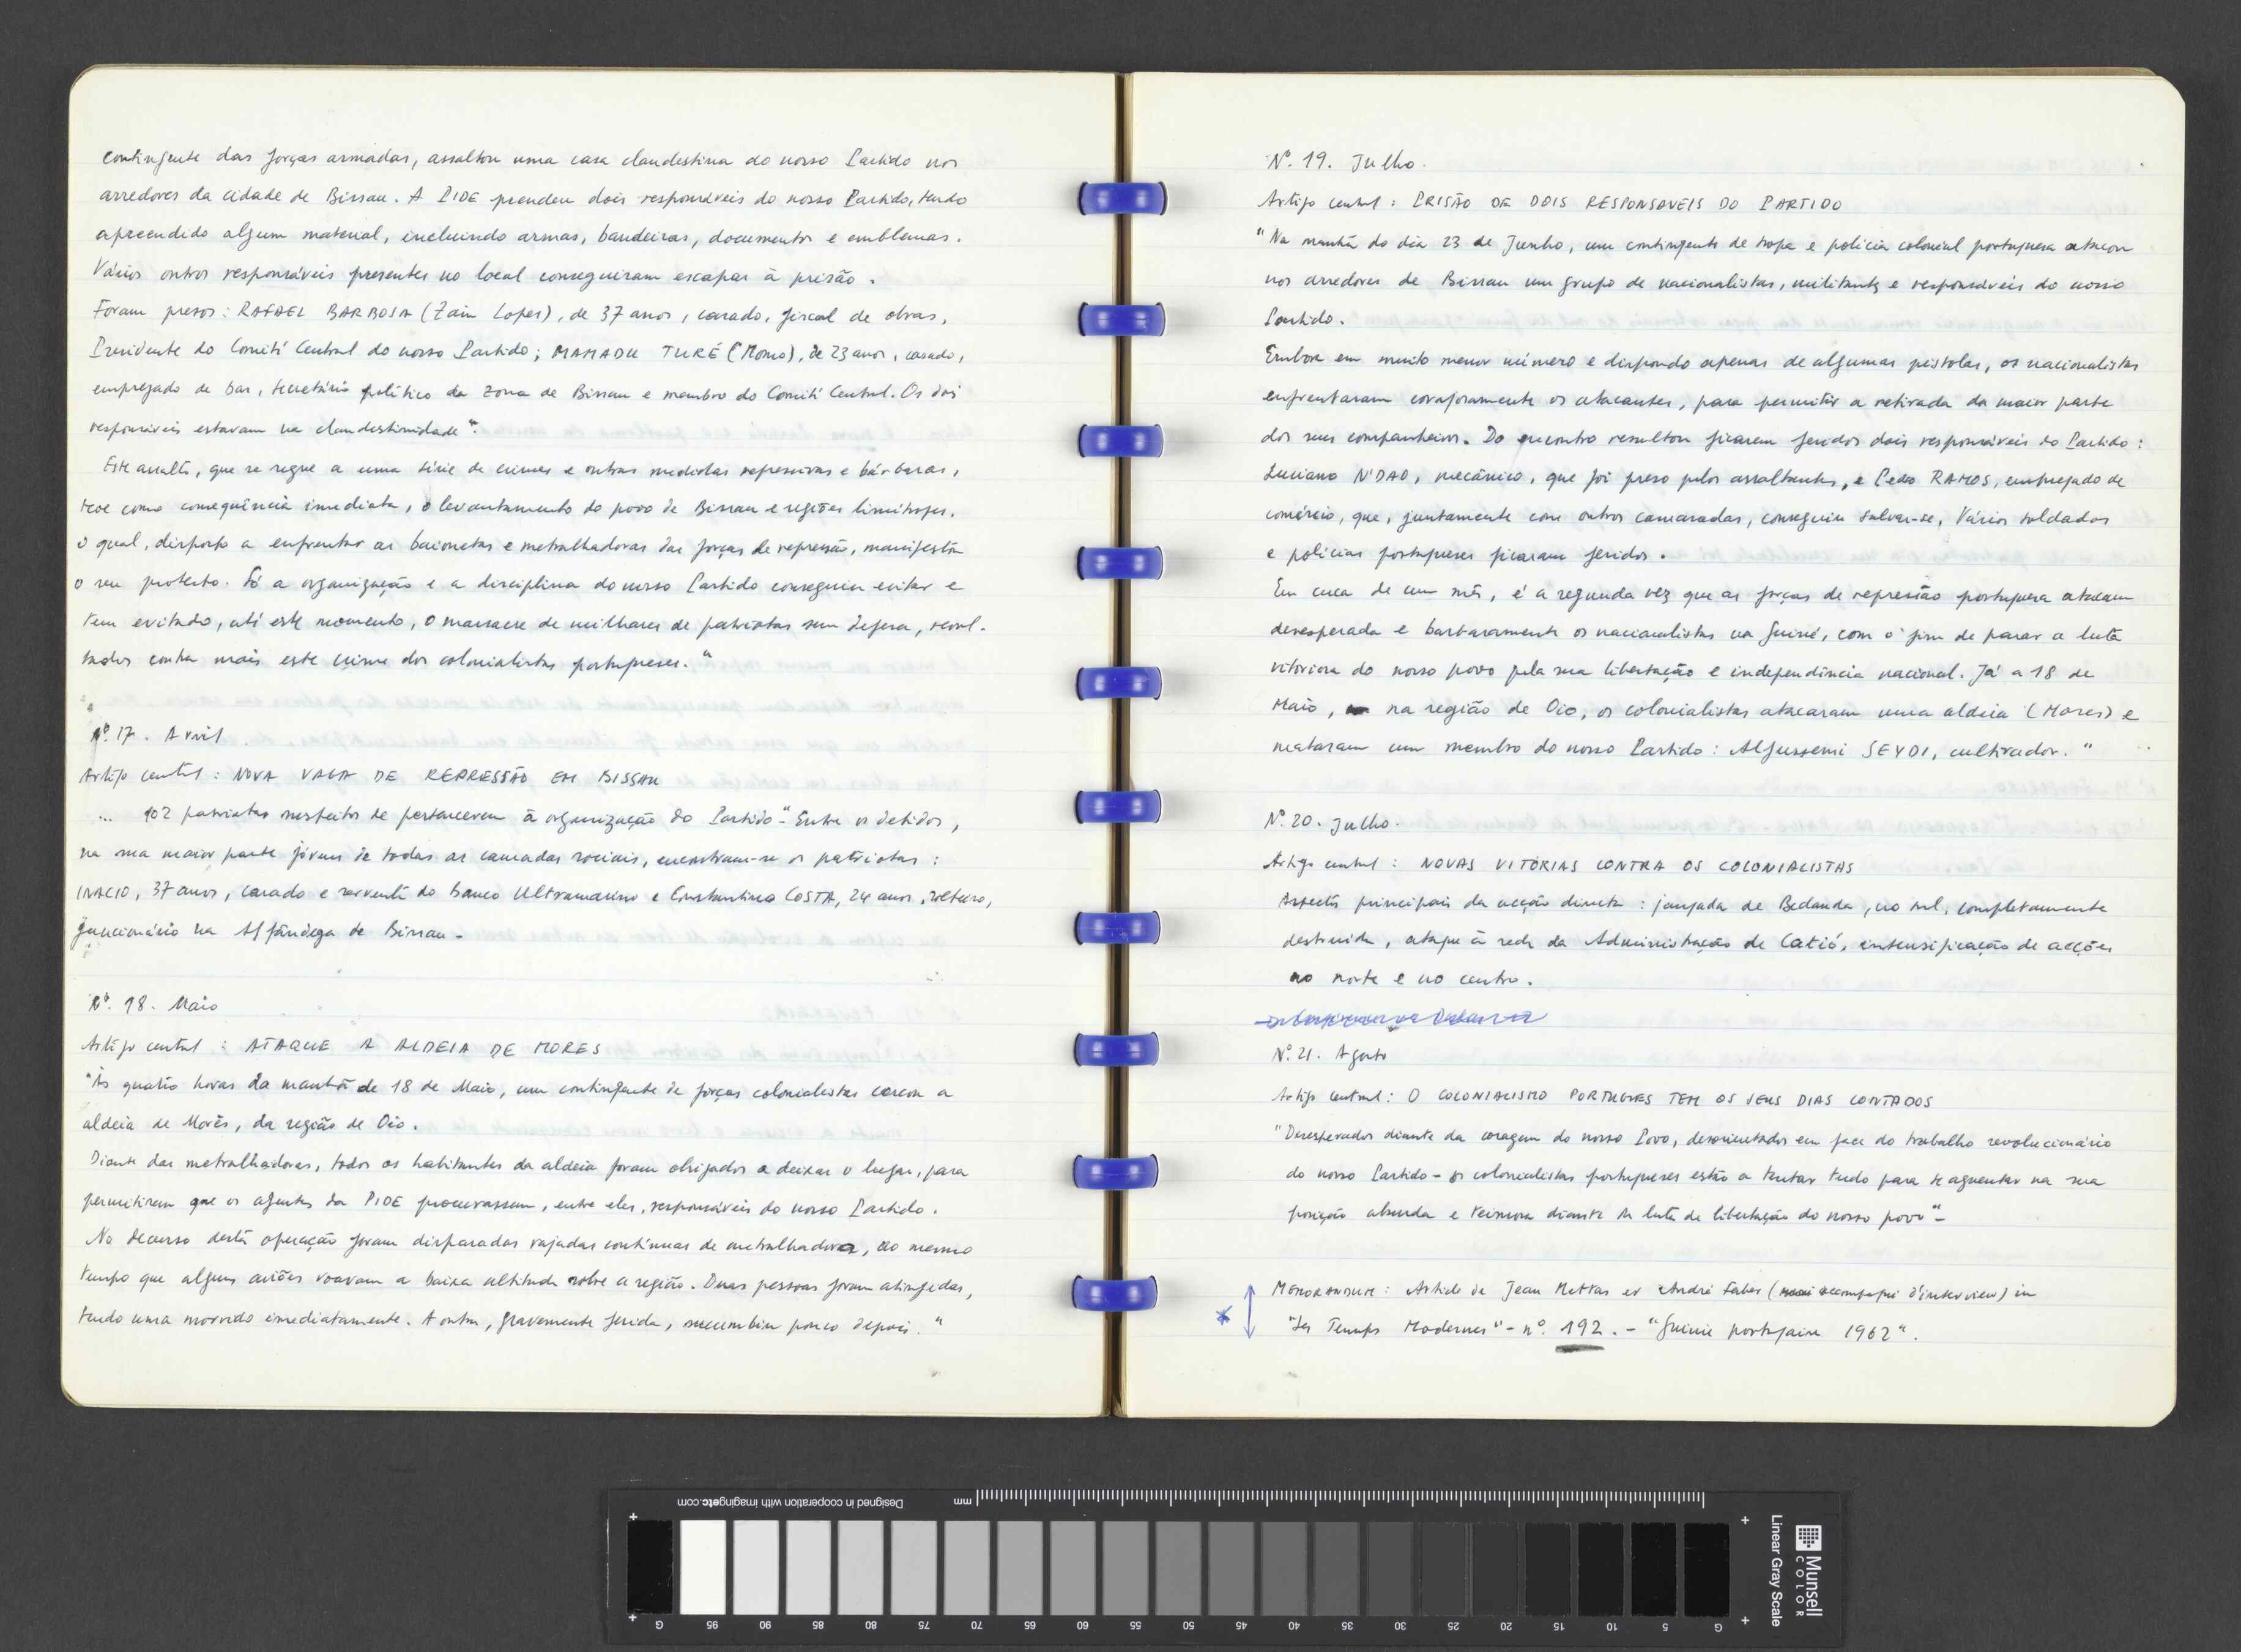 contingente das forças armadas, assaltou uma casa clandestina do nosso Partido nos
arredores da cidade de Bissau. A PIDE prendeu dois responsáveis do nosso Partido, tendo
apreendido algum material, incluindo armas, bandeiras, documentos e emblemas.
Vários outros responsáveis presentes no local conseguiram escapar à prisão.
Foram presos: RAFAEL BARBOSA (Zain Lopes), de 37 anos, casado, fiscal de obras,
Presidente do Comité Central do nosso Partido; MAMADU TURÉ (Momo), de 23 anos, casado,
empregado de bar, secretário político da zona de Bissau e membro do Comité Central. Os dois
responsáveis estavam na clandestinidade".
Este assalto, que se segue a uma série de crimes e outras medidas repressivas e bárbaras,
teve como consequência imediata, o levantamento do povo de Bissau e regiões limítrofes,
o qual, disposto a enfrentar as baionetas e metralhadoras das forças de repressão, manifesta
o seu protesto. Só a organização e a disciplina do nosso Partido conseguiu evitar e
tem evitado, até este momento, o massacre de milhares de patriotas sem defesa, revol-
tados contra mais este crime dos colonialistas portugueses."
Nº. 17. Avril
Artigo central: NOVA VAGA DE REPRESSÃO EM BISSAU
... 102 patriotas suspeitos de pertencerem à organização do Partido". Entre os detidos,
na sua maior parte jóvens de todas as camadas sociais, encontram-se os patriotas:
INACIO, 37 anos, casado e servente do Banco Ultramarino e Constantino COSTA, 24 anos, solteiro,
funcionário na Alfândega de Bissau.
Nº. 18. Maio
Artigo central: ATAQUE A ALDEIA DE MORES
"Às quatro horas da manhã de 18 de Maio, um contingente de forças colonialistas cercou a
aldeia de Morès, da região de Oio.
Diante das metralhadoras, todos os habitantes da aldeia foram obrigados a deixar o lugar, para
permitirem que os agentes da PIDE procurassem, entre eles, responsáveis do nosso Partido.
No decurso desta operação foram disparadas rajadas contínuas de metralhadora, ao mesmo
tempo que alguns aviões voavam a baixa altitude sobre a região. Duas pessoas foram atingidas,
tendo uma morrido imediatamente. A outra, gravemente ferida, sucumbiu pouco depois."
Nº. 19. Julho.
Artigo central: PRISÃO DE DOIS RESPONSAVEIS DO PARTIDO
"Na manhã do dia 23 de Junho, um contingente de tropa e polícia colonial portuguesa atacou
nos arredores de Bissau um grupo de nacionalistas, militantes e responsáveis do nosso
Partido.
Embora em muito menor número e dispondo apenas de algumas pistolas, os nacionalistas
enfrentaram corajosamente os atacantes, para permitir a retirada da maior parte
dos seus companheiros. Do encontro resultou ficarem feridos dois responsáveis do Partido:
Luciano N'DAO, mecânico, que foi preso pelos assaltantes, e Pedro RAMOS, empregado de
comércio, que, juntamente com outros camaradas, conseguiu salvar-se. Vários soldados
e polícias portugueses ficaram feridos.
Em cerca de um mês, é a segunda vez que as forças de repressão portuguesa atacam
desesperada e barbaramente os nacionalistas na Guiné, com o fim de parar a luta
vitoriosa do nosso povo pela sua libertação e independência nacional. Já a 18 de
Maio, na região de Oio, os colonialistas atacaram uma aldeia (Mores) e
mataram um membro do nosso Partido: Algussemi SEYDI, cultivador."
Nº. 20. Julho.
Artigo central: NOVAS VITÓRIAS CONTRA OS COLONIALISTAS
Aspectos principais da acção directa: jangada de Bedanda, no sul, completamente
destruida, ataque à sede da Administração de Catió, intensificação de acções
no norte e no centro.
Nº. 21. Agosto
Artigo central: O COLONIALISMO PORTUGUES TEM OS SEUS DIAS CONTADOS
"Desesperados diante da coragem do nosso Povo, desorientados em face do trabalho revolucionário
do nosso Partido - os colonialistas portugueses estão a tentar tudo para se aguentar na sua
posição absurda e teimosa diante da luta de libertação do nosso povo".
MEMORANDUM: Article de Jean Mettas et André Faber (accompagné d'interview) in
* "Les Temps Modernes" - nº. 192. - "Guinée portugaise 1962".
Designed in cooperation with imagingetc.com
mm
G 95 90 85 80 75 70 65 60 55 50 45 40 35 30 25 20 15 10 5 G
Munsell
COLOR
Linear Gray Scale